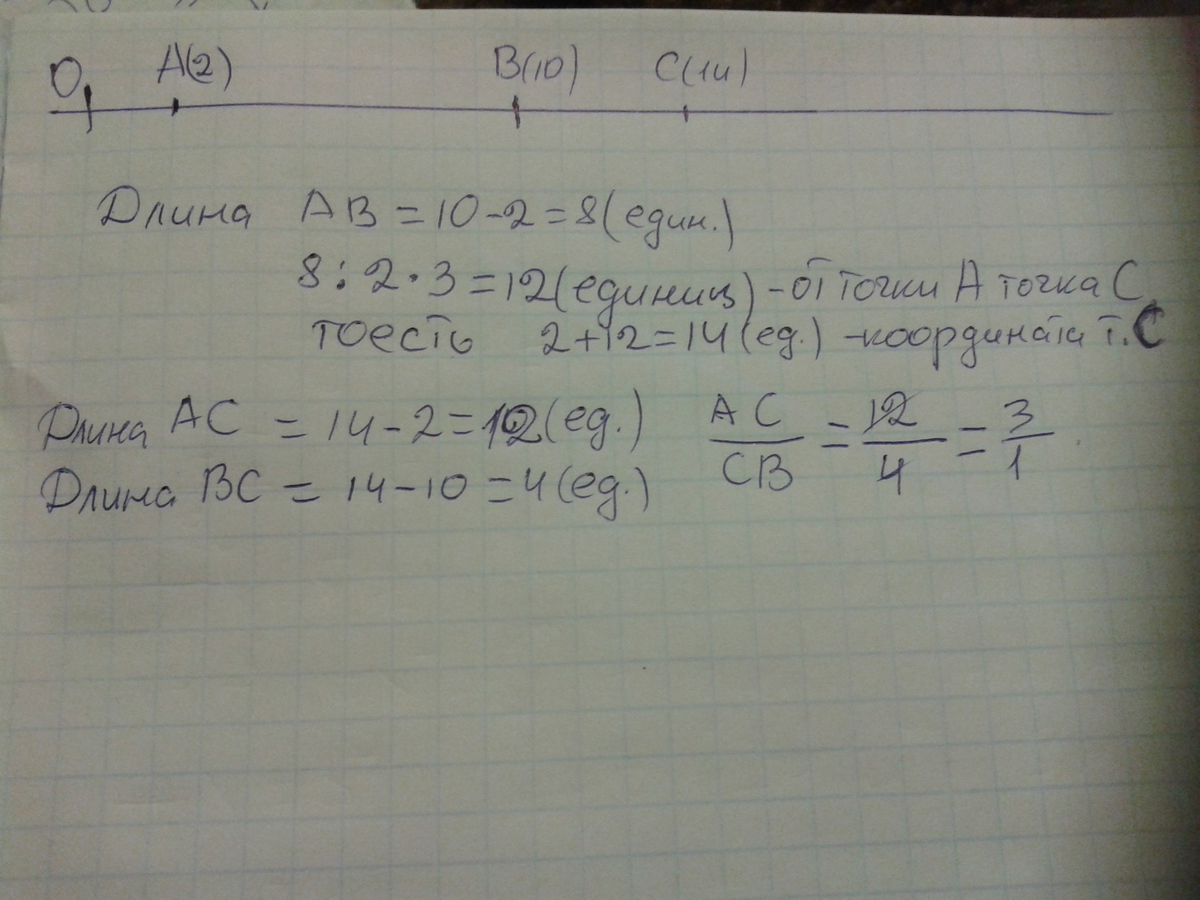 0 A(2) B(10) C(14)
Длина AB = 10 - 2 = 8 (един.)
8 : 2 · 3 = 12 (единиц) - от точки A точка C,
тоесть 2 + 12 = 14 (ед.) - координата т. C
Длина AC = 14 - 2 = 12 (ед.) AC/CB = 12/4 = 3/1
Длина BC = 14 - 10 = 4 (ед.)